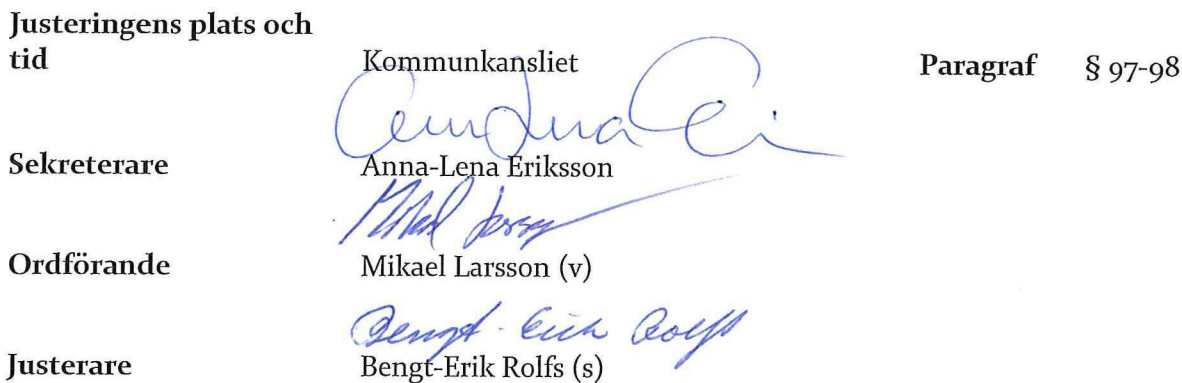 Justeringens plats och
tid Kommunkansliet Paragraf § 97-98
Sekreterare Anna-Lena Eriksson
Ordförande Mikael Larsson (v)
Bengt-Erik Rolfs
Justerare Bengt-Erik Rolfs (s)